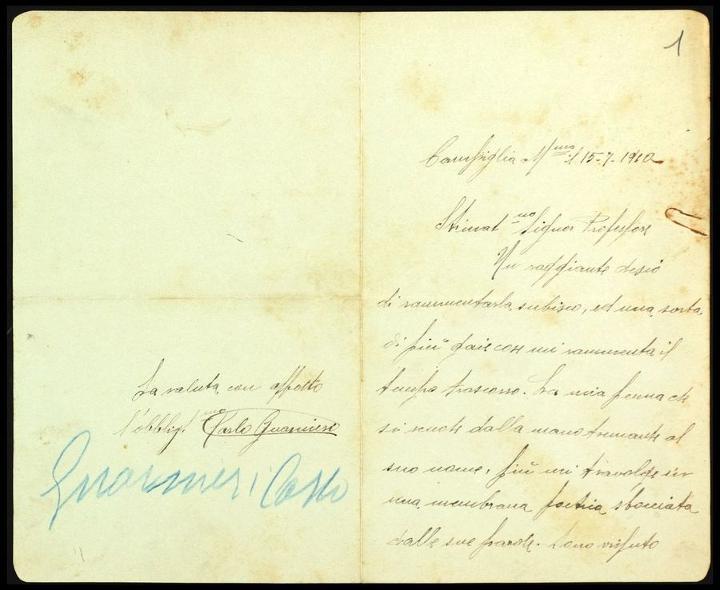 1
Campiglia M.mo il 15-7-1910
Stimat.mo Signor Professore
Un raggiante desio
di rammentarla subisco, ed una sorta
di più gaie cose mi rammenta il
tempo trascorso. La mia penna che
si scuote dalla mano tremante al
suo nome, più mi travolge in
una membrana poetica sbocciata
dalle sue parole. Sono vissuto
La saluta con affetto
l'obbligt.mo Carlo Guarnieri
Guarnieri Carlo